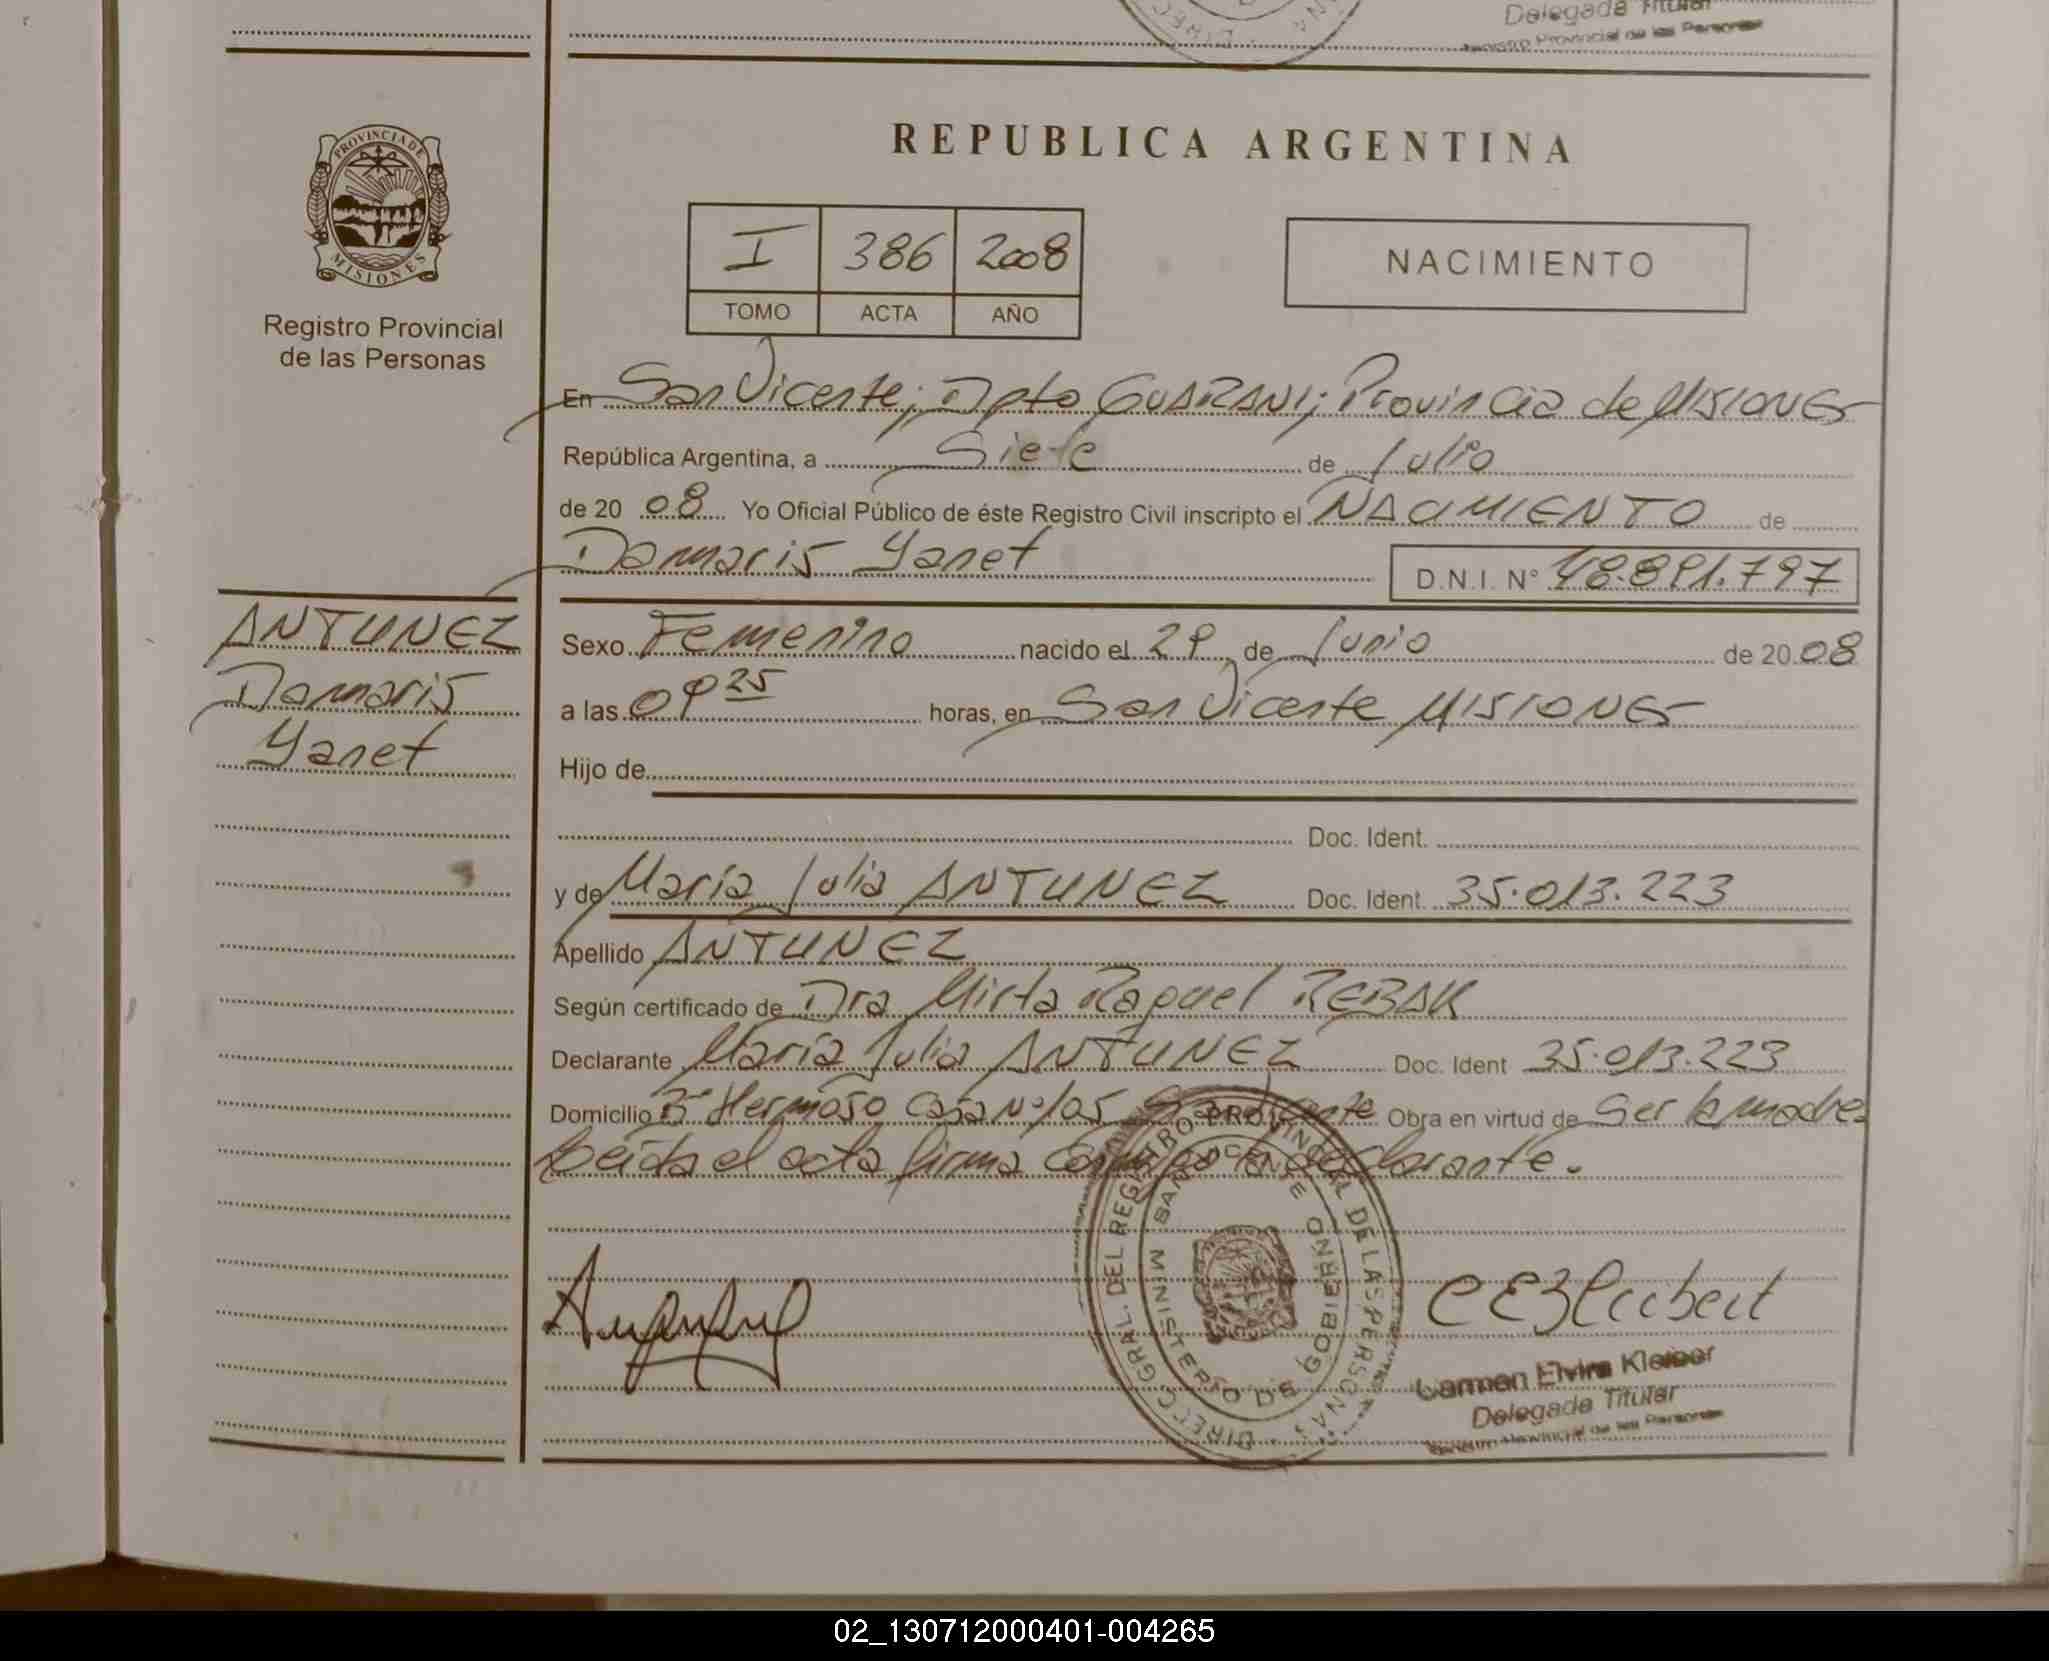 Delegada Titular
Registro Provincial de las Personas
PROVINCIA DE
MISIONES
Registro Provincial
de las Personas
REPUBLICA ARGENTINA
I 386 2008
TOMO ACTA AÑO
NACIMIENTO
En San Vicente; Dpto GUARANI; Provincia de MISIONES
República Argentina, a Siete de Julio
de 20 08 Yo Oficial Público de éste Registro Civil inscripto el NACIMIENTO de
Damaris Yanet D.N.I. N° 48.891.797
ANTUNEZ
Damaris
Yanet
Sexo Femenino nacido el 29 de Junio de 20 08
a las 09 25 horas, en San Vicente MISIONES
Hijo de
Doc. Ident.
y de María Julia ANTUNEZ Doc. Ident. 35.013.223
Apellido ANTUNEZ
Según certificado de Dra Mirta Raquel REBAK
Declarante María Julia ANTUNEZ Doc. Ident 35.013.223
Domicilio B° Hermoso Casa N° 105 Obra en virtud de Ser la madre
Leída el acta firma conmigo la declarante.
DIRECC. GRAL. DEL REGISTRO PROVINCIAL DE LAS PERSONAS
MINISTERIO DE GOBIERNO
SAN VICENTE
Carmen Elvira Kleiber
Delegada Titular
Registro Provincial de las Personas
02_130712000401-004265